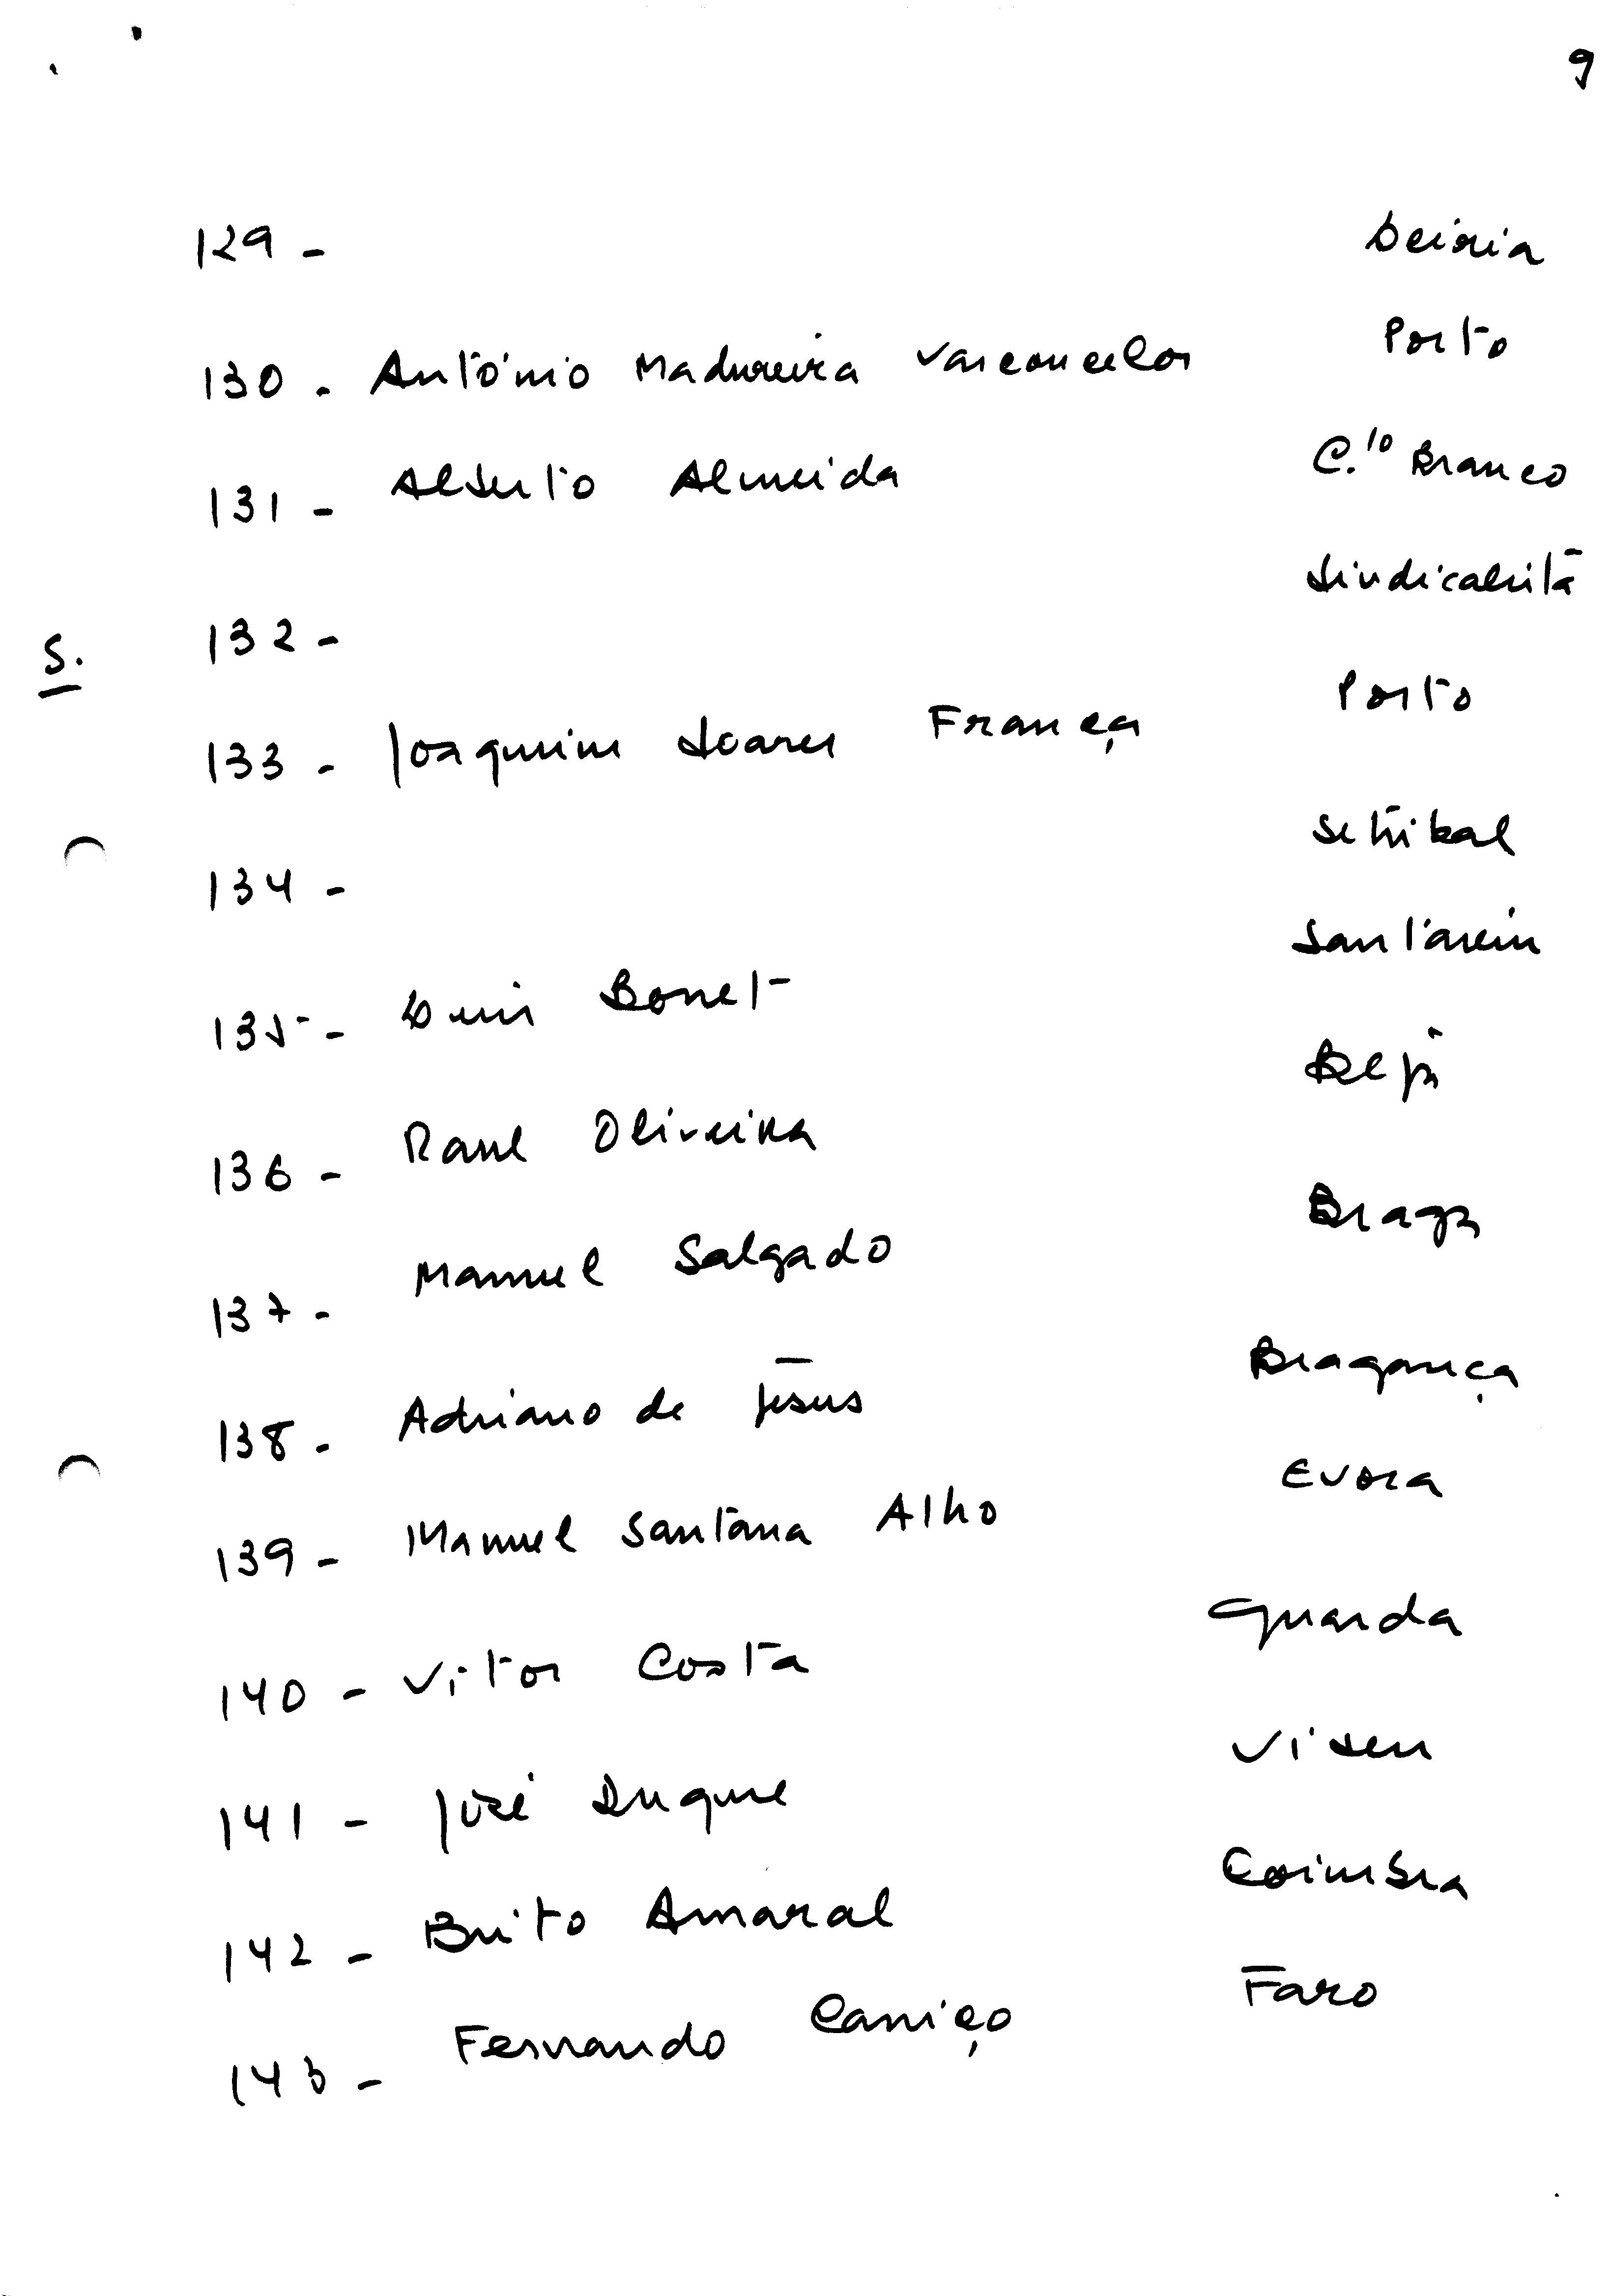 9
129 - Leiria
130 - António Madureira Vasconcelos Porto
131 - Alberto Almeida C.to Branco
132 - Sindicalista
S.
133 - Joaquim Soares França Porto
134 - Setúbal
135 - Luis Bonet Santarém
136 - Raul Oliveira Beja
137 - Manuel Salgado Braga
138 - Adriano de Jesus Bragança
139 - Manuel Santana Alho Evora
140 - Vitor Costa Guarda
141 - José Duque Viseu
142 - Brito Amaral Coimbra
143 - Fernando Caniço Faro